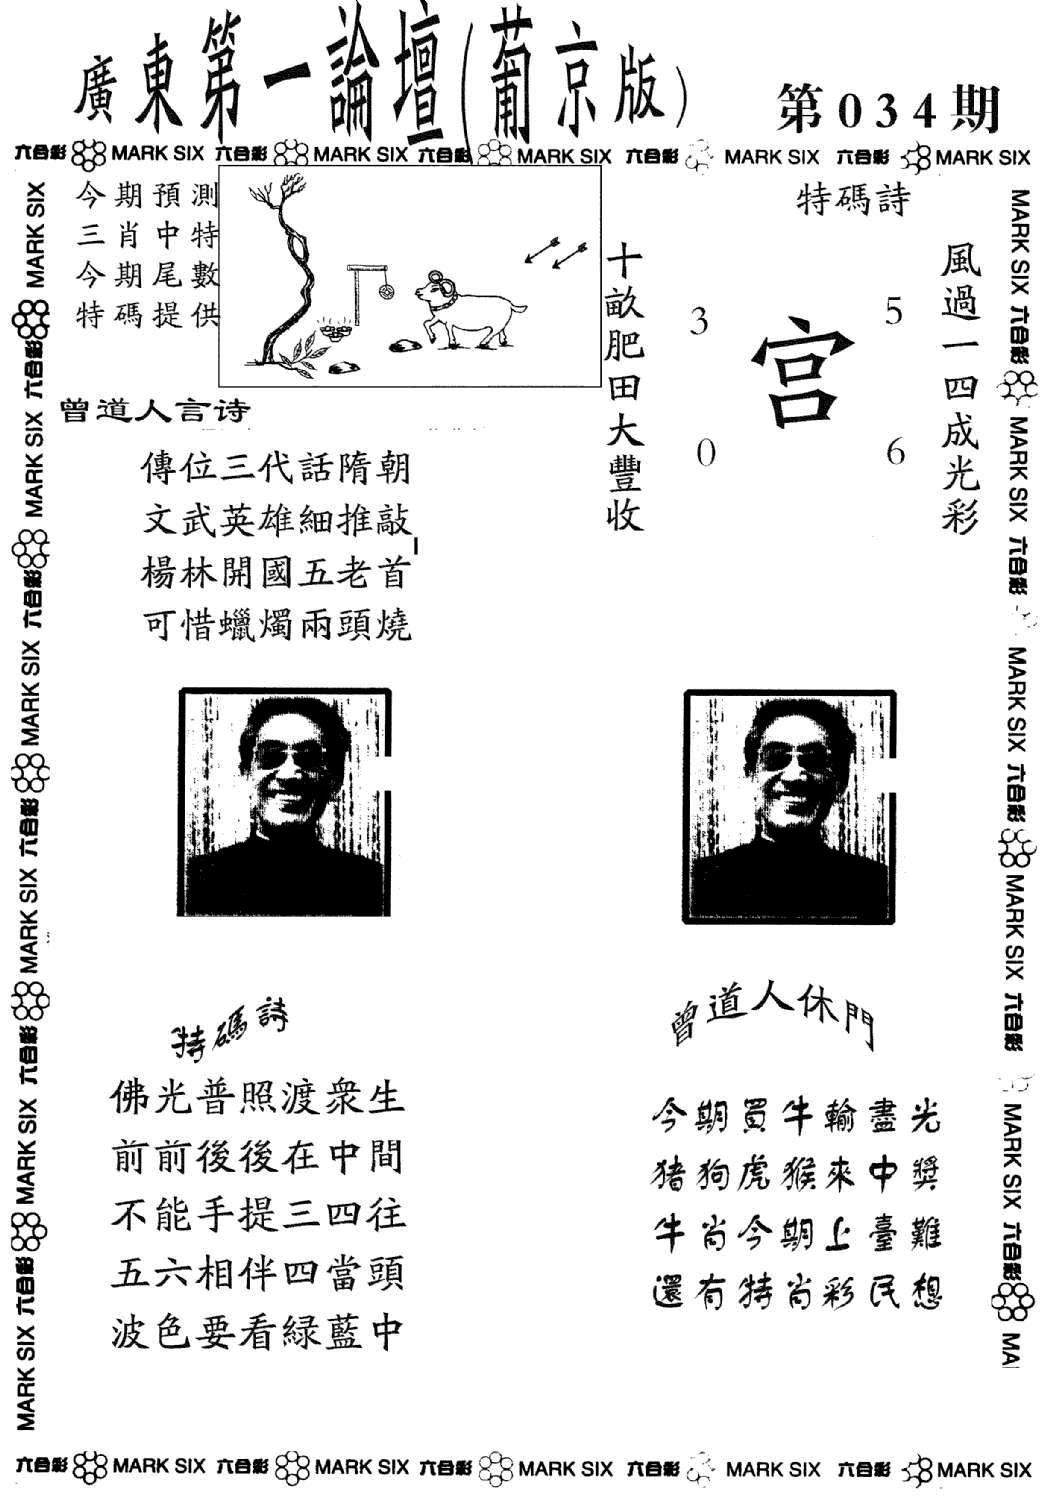 廣東第一論壇(葡京版)
第034期
六合彩 MARK SIX 六合彩 MARK SIX 六合彩 MARK SIX 六合彩 MARK SIX 六合彩 MARK SIX
今期預測
三肖中特
今期尾數
特碼提供
特碼詩
十畝肥田大豐收
3 5
宮
0 6
風過一四成光彩
曾道人言诗
傳位三代話隋朝
文武英雄細推敲
楊林開國五老首
可惜蠟燭兩頭燒
特碼詩
佛光普照渡衆生
前前後後在中間
不能手提三四往
五六相伴四當頭
波色要看緑藍中
曾道人休門
今期買牛輸盡光
猪狗虎猴來中獎
牛肖今期上臺難
還有特肖彩民想
MARK SIX 六合彩 MARK SIX 六合彩 MARK SIX 六合彩 MARK SIX 六合彩 MARK SIX 六合彩 MARK SIX
MARK SIX 六合彩 MARK SIX 六合彩 MARK SIX 六合彩 MARK SIX 六合彩 MARK SIX 六合彩 MA
六合彩 MARK SIX 六合彩 MARK SIX 六合彩 MARK SIX 六合彩 MARK SIX 六合彩 MARK SIX